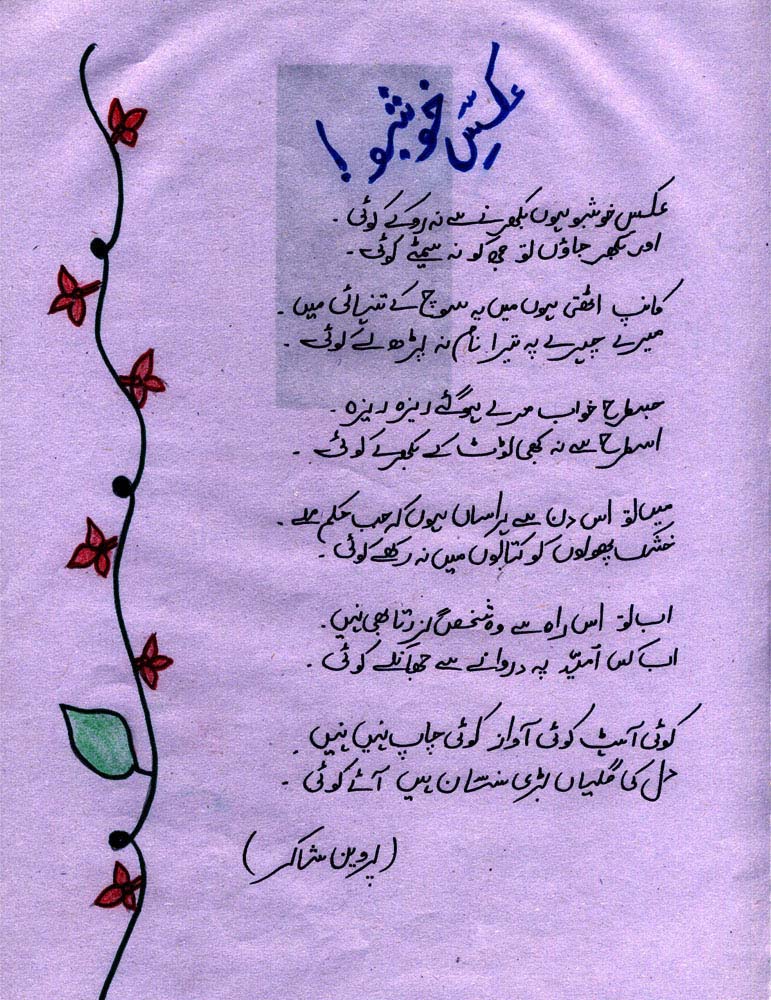 عکسِ خوشبو!
عکسِ خوشبو ہوں بکھرنے سے نہ روکے کوئی ۔
اور بکھر جاؤں تو مجھ کو نہ سمیٹے کوئی ۔
کانپ اٹھتی ہوں میں یہ سوچ کے تنہائی میں ۔
میرے چہرے پہ تیرا نام نہ پڑھ لے کوئی ۔
جسطرح خواب مرے ہوگئے ریزہ ریزہ ۔
اسطرح سے نہ کبھی ٹوٹ کے بکھرے کوئی ۔
میں تو اس دن سے ہراساں ہوں کہ جب حکم ملے ۔
خشک پھولوں کو کتابوں میں نہ رکھے کوئی ۔
اب تو اس راہ سے وہ شخص گزرتا بھی نہیں ۔
اب کس امید پہ دروازے سے جھانکے کوئی ۔
کوئی آہٹ کوئی آواز کوئی چاپ نہیں نہیں ۔
دل کی گلیاں بڑی سنسان ہیں آئے کوئی ۔
(پروین شاکر)